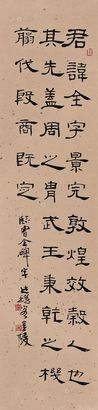 君諱全字景完敦煌效穀人也
其先蓋周之胄武王秉乾之機
翦伐殷商既定
臨曹全碑字